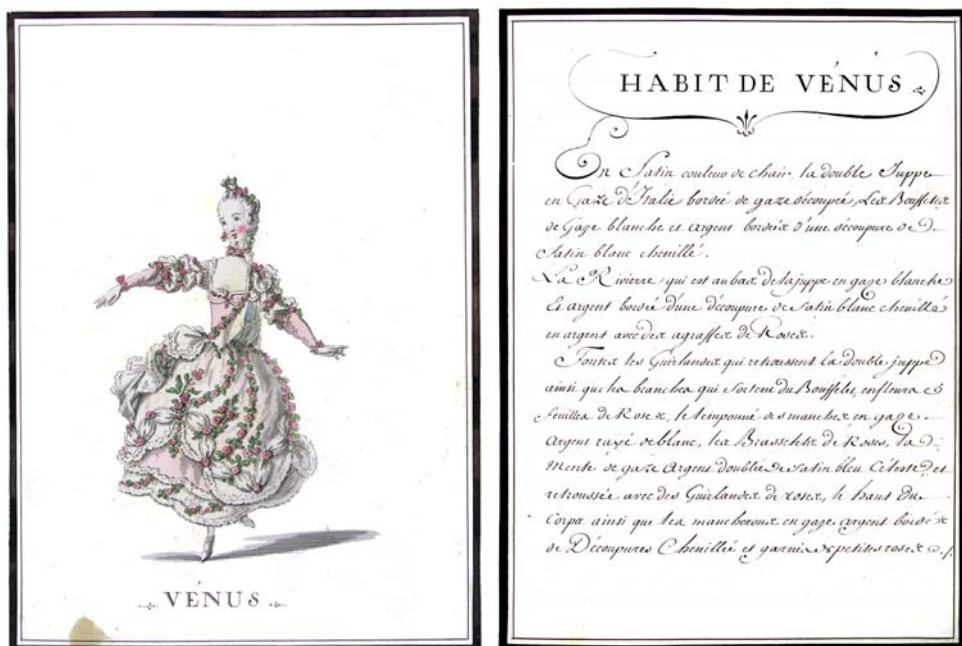 VÉNUS
HABIT DE VÉNUS
En Satin couleur de chair, la double Juppe
en Gaze d'Italie bordée de gaze découpée, Les Bouffettes
de Gaze blanche et argent bordées d'une découpure de
Satin blanc chenillé.
La Rivierre qui est au bas de la juppe en gaze blanche
Et argent bordée d'une découpure de Satin blanc chenillé
en argent avec des agraffes de Roses.
Toutes les Guirlandes qui retroussent la double juppe
ainsi que les branches qui Sortent du Bouffetes, en fleurs et
feuilles de Roses, le tamponné des manches en gaze
Argent rayé de blanc, les Brasselets de Roses, la
Mente de gaze Argent doublée de Satin bleu Céleste et
retroussée avec des Guirlandes de roses, le haut du
Corps ainsi que les mancherons en gaze argent bordés
de Découpures Chenillée et garnis de petites roses